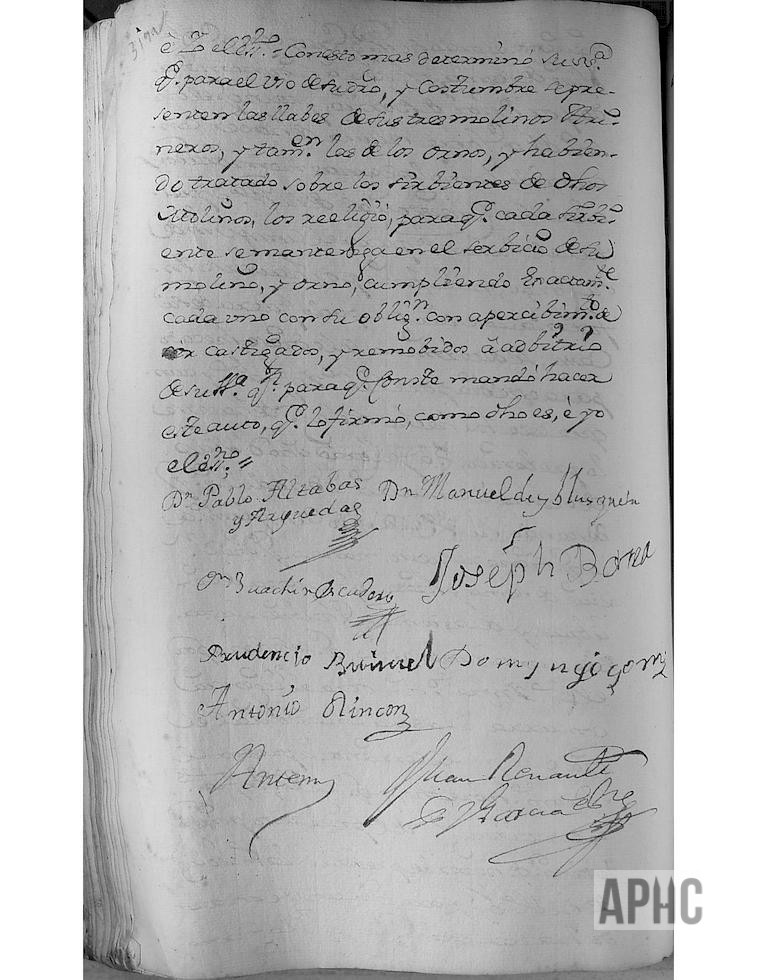 è Yo el es.no = Con esto mas determinó su S.a
q.e para el vso de su dro, y Costumbre se pre-
senten las llabes de sus tres molinos Hari-
neros, y tamb.en las de los ornos, y habien-
do tratado sobre los sirbientes de dhos
Molinos, los reeligió, para q.e cada sirbi-
ente se mantenga en el serbicio de su
molino, y orno, cumpliendo Exactam.te
cada vno con su oblig.n con apercibim.to de
ser castigados, y remobidos â adbitrio
de su S.a q.n para q.e Conste mandó hacer
este auto, q.e lo firmó, como dho es, è yo
el es.no =
Dn Pablo Altabas
y Arguedas
Dn Manuel de
Dn Juachin Escudero
Joseph Borra
Prudencio Buinuel
Domyngo gomz
Antonio Rincon
Antem
Juan Renault
y Garcia
APHC